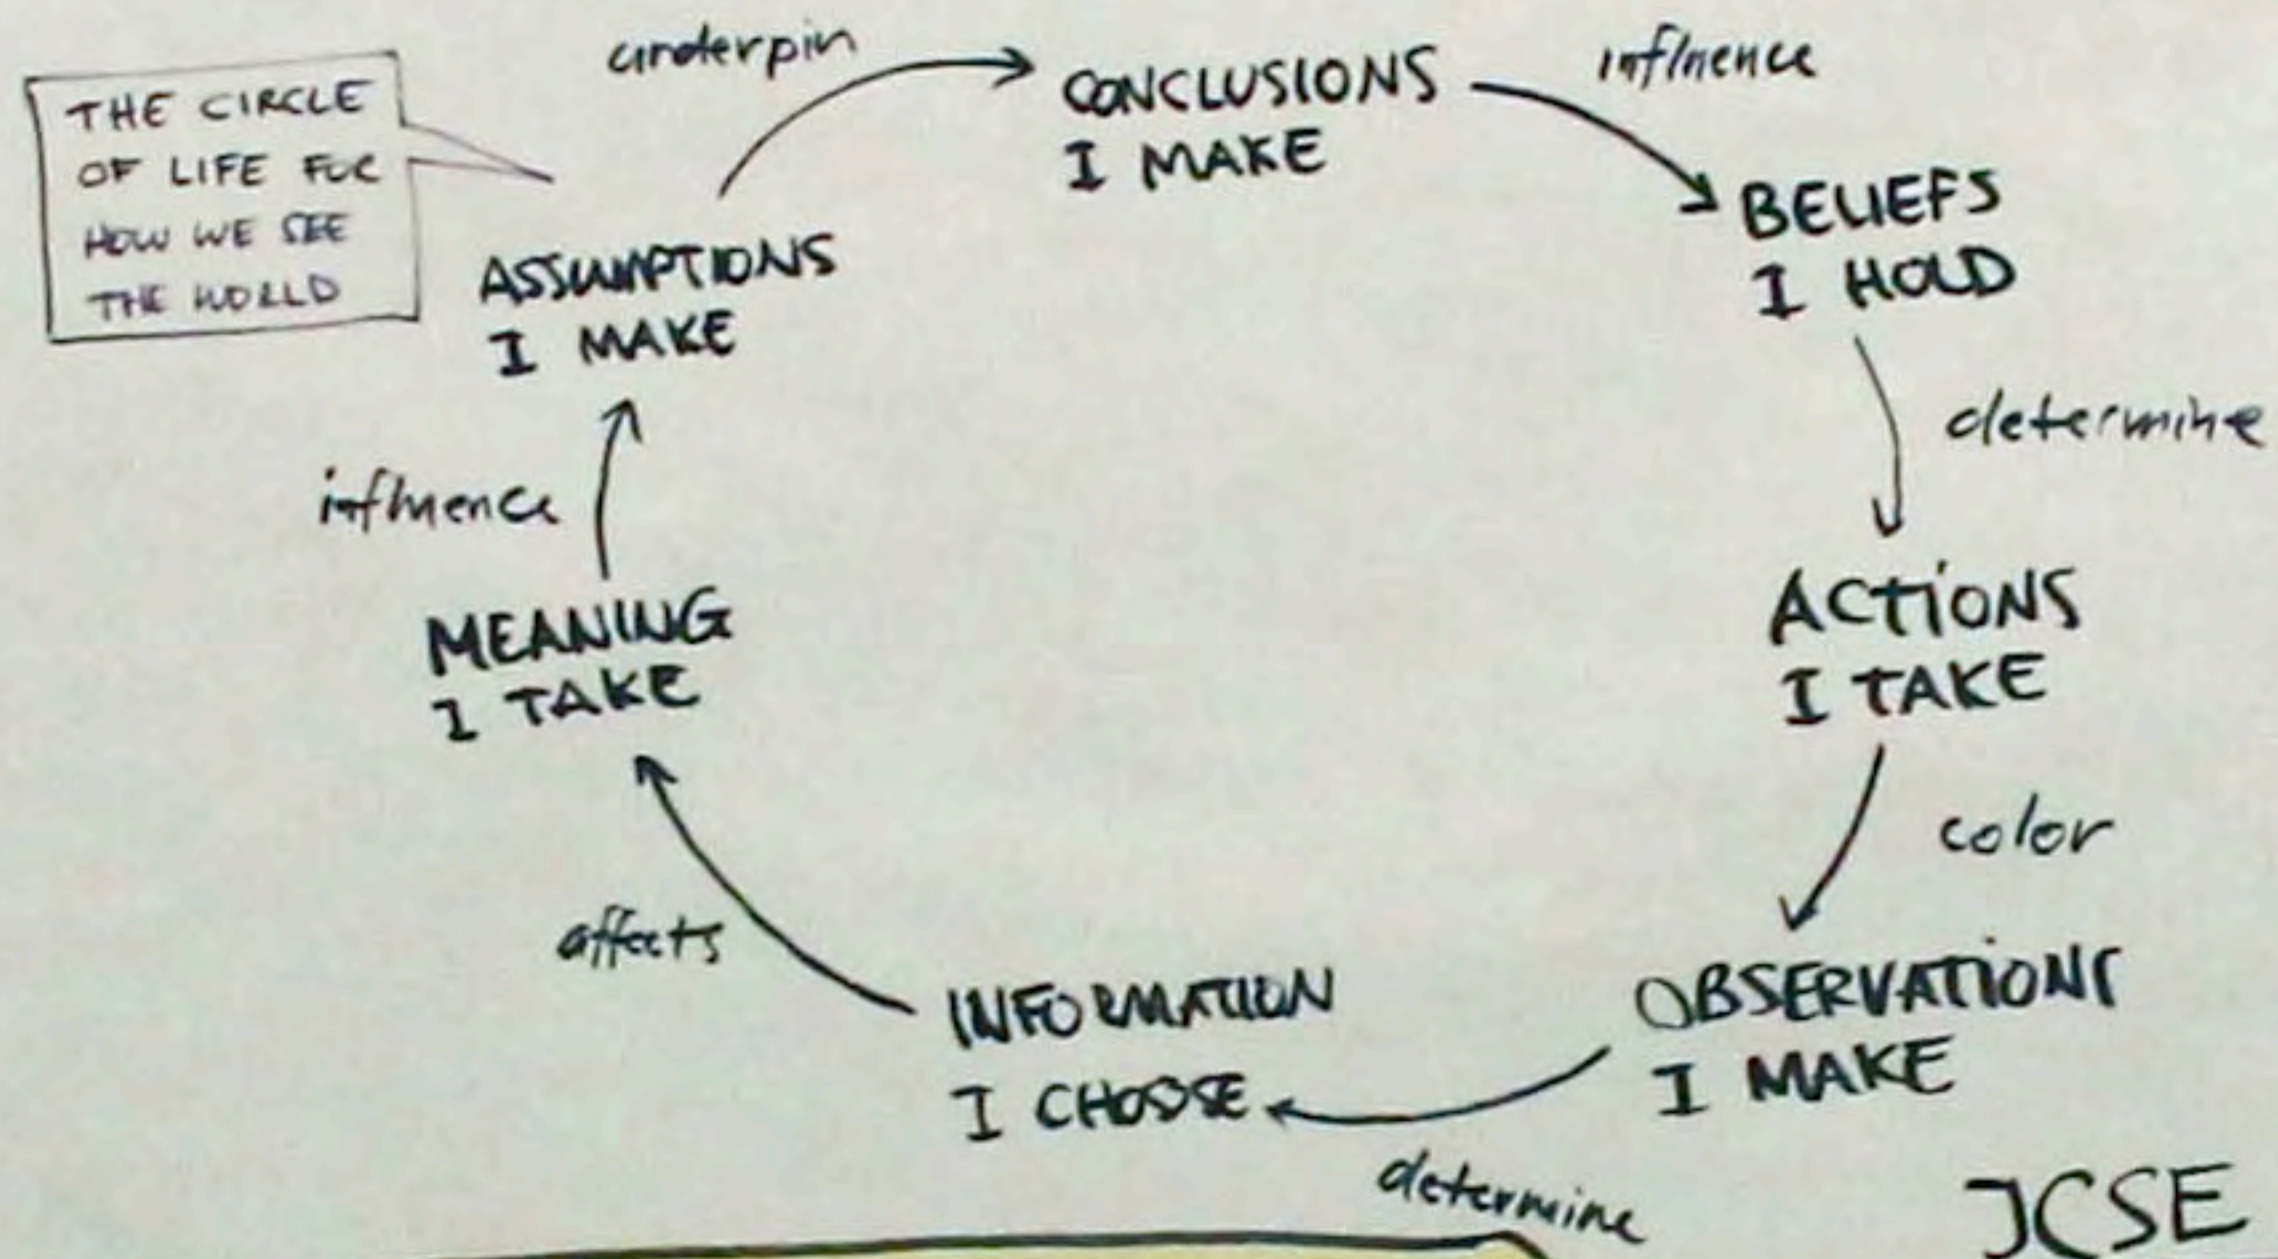 THE CIRCLE
OF LIFE FOR
HOW WE SEE
THE WORLD
underpin
CONCLUSIONS
I MAKE
influence
BELIEFS
I HOLD
determine
ACTIONS
I TAKE
color
OBSERVATIONS
I MAKE
determine
INFORMATION
I CHOOSE
affects
MEANING
I TAKE
influence
ASSUMPTIONS
I MAKE
JCSE